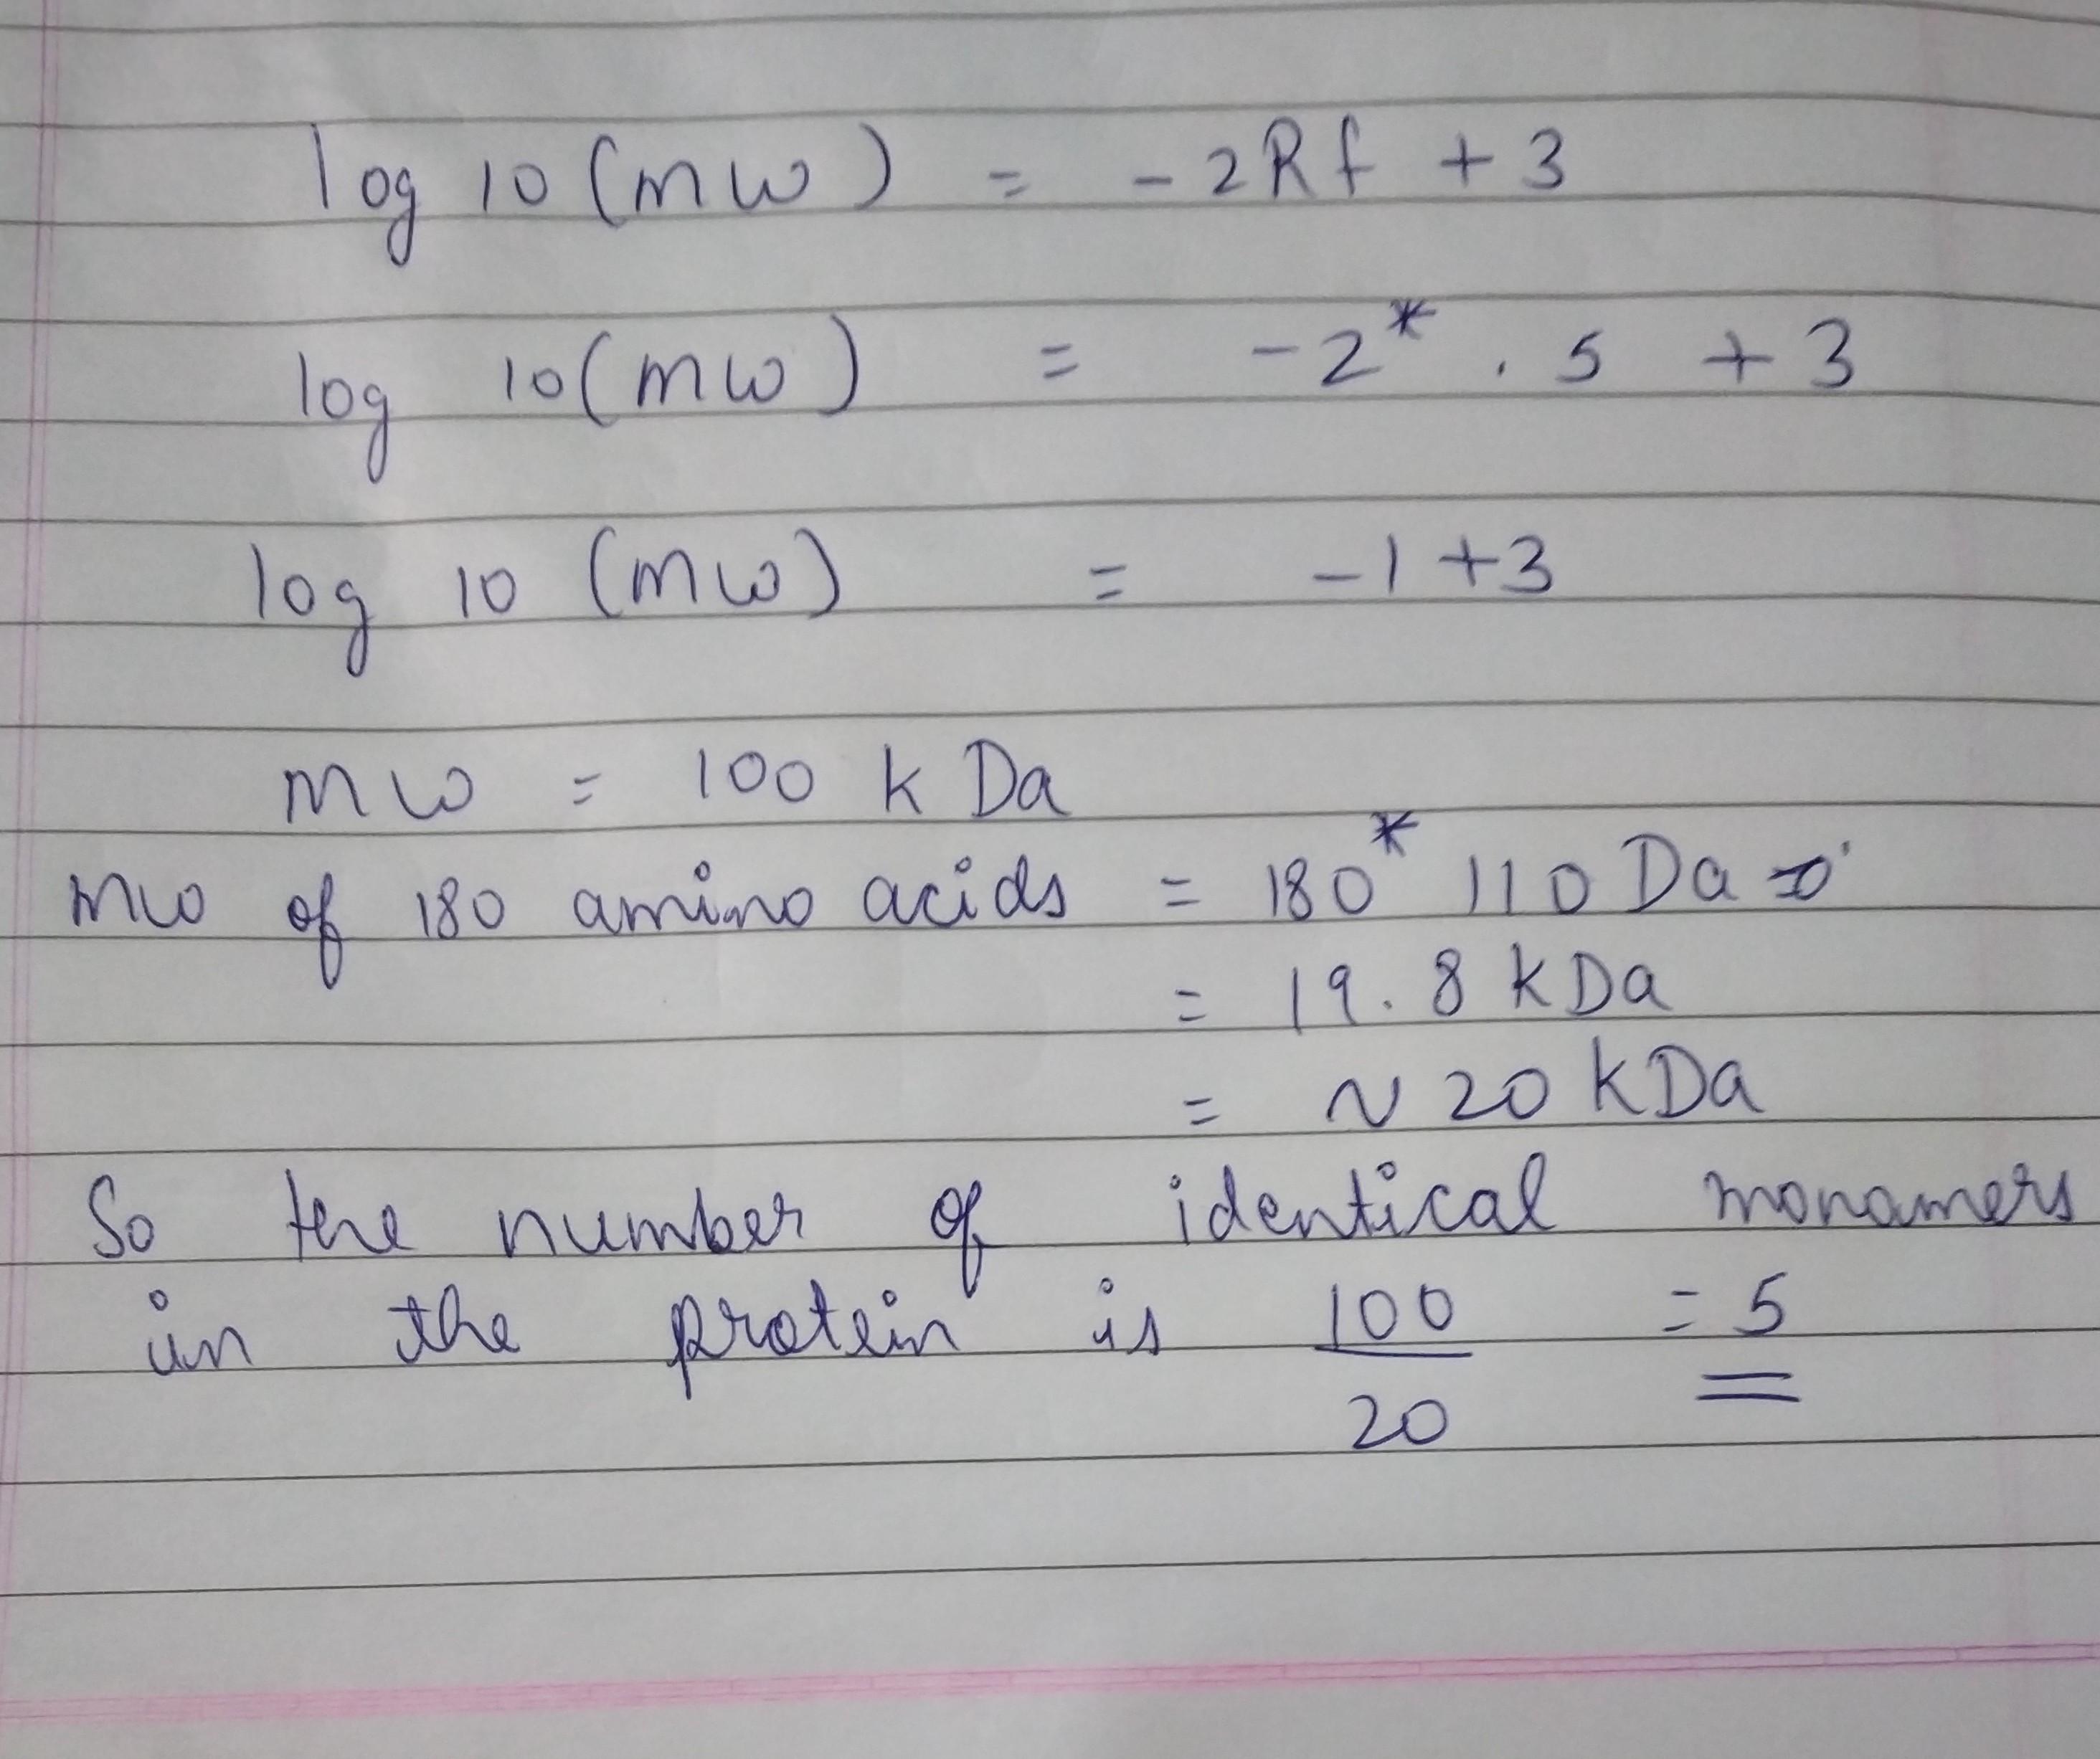 log 10 (mw) = - 2Rf + 3
log 10(mw) = -2* .5 +3
log 10 (mw) = -1+3
mw = 100 k Da
mw of 180 amino acids = 180* 110 Da
= 19.8 kDa
= ~ 20 kDa
So the number of identical monamers
in the protein is 100 = 5
20